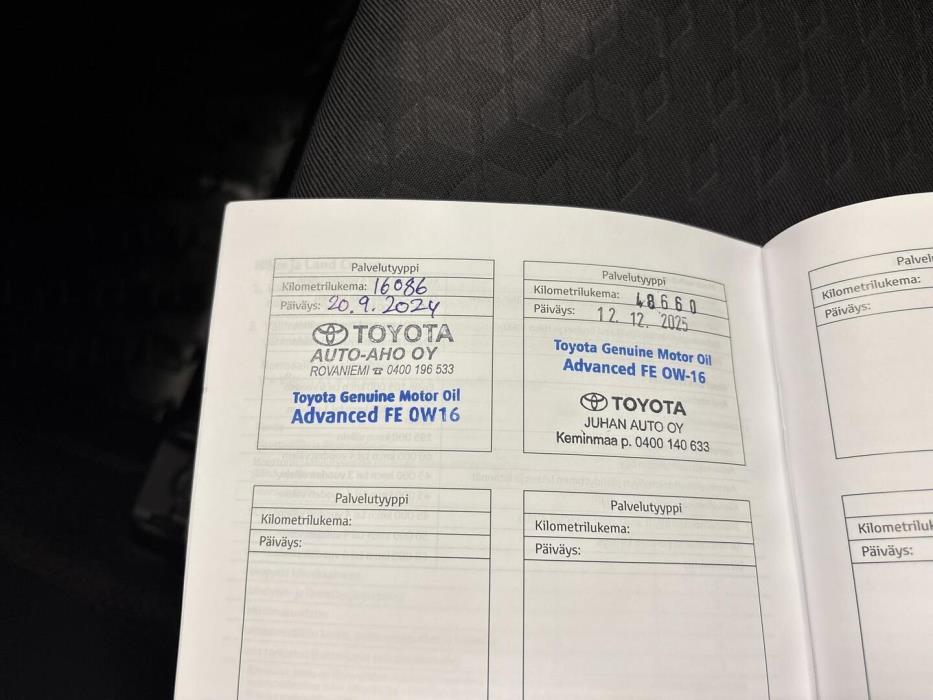 Palvelutyyppi
Kilometrilukema: 16086
Päiväys: 20.9.2024
TOYOTA
AUTO-AHO OY
ROVANIEMI ☎ 0400 196 533
Toyota Genuine Motor Oil
Advanced FE 0W16
Palvelutyyppi
Kilometrilukema: 48660
Päiväys: 12. 12. 2025
Toyota Genuine Motor Oil
Advanced FE 0W-16
TOYOTA
JUHAN AUTO OY
Keminmaa p. 0400 140 633
Palvelutyyppi
Kilometrilukema:
Päiväys:
Palvelutyyppi
Kilometrilukema:
Päiväys:
Palvel
Kilometrilukema:
Päiväys:
Kilometriluk
Päiväys: